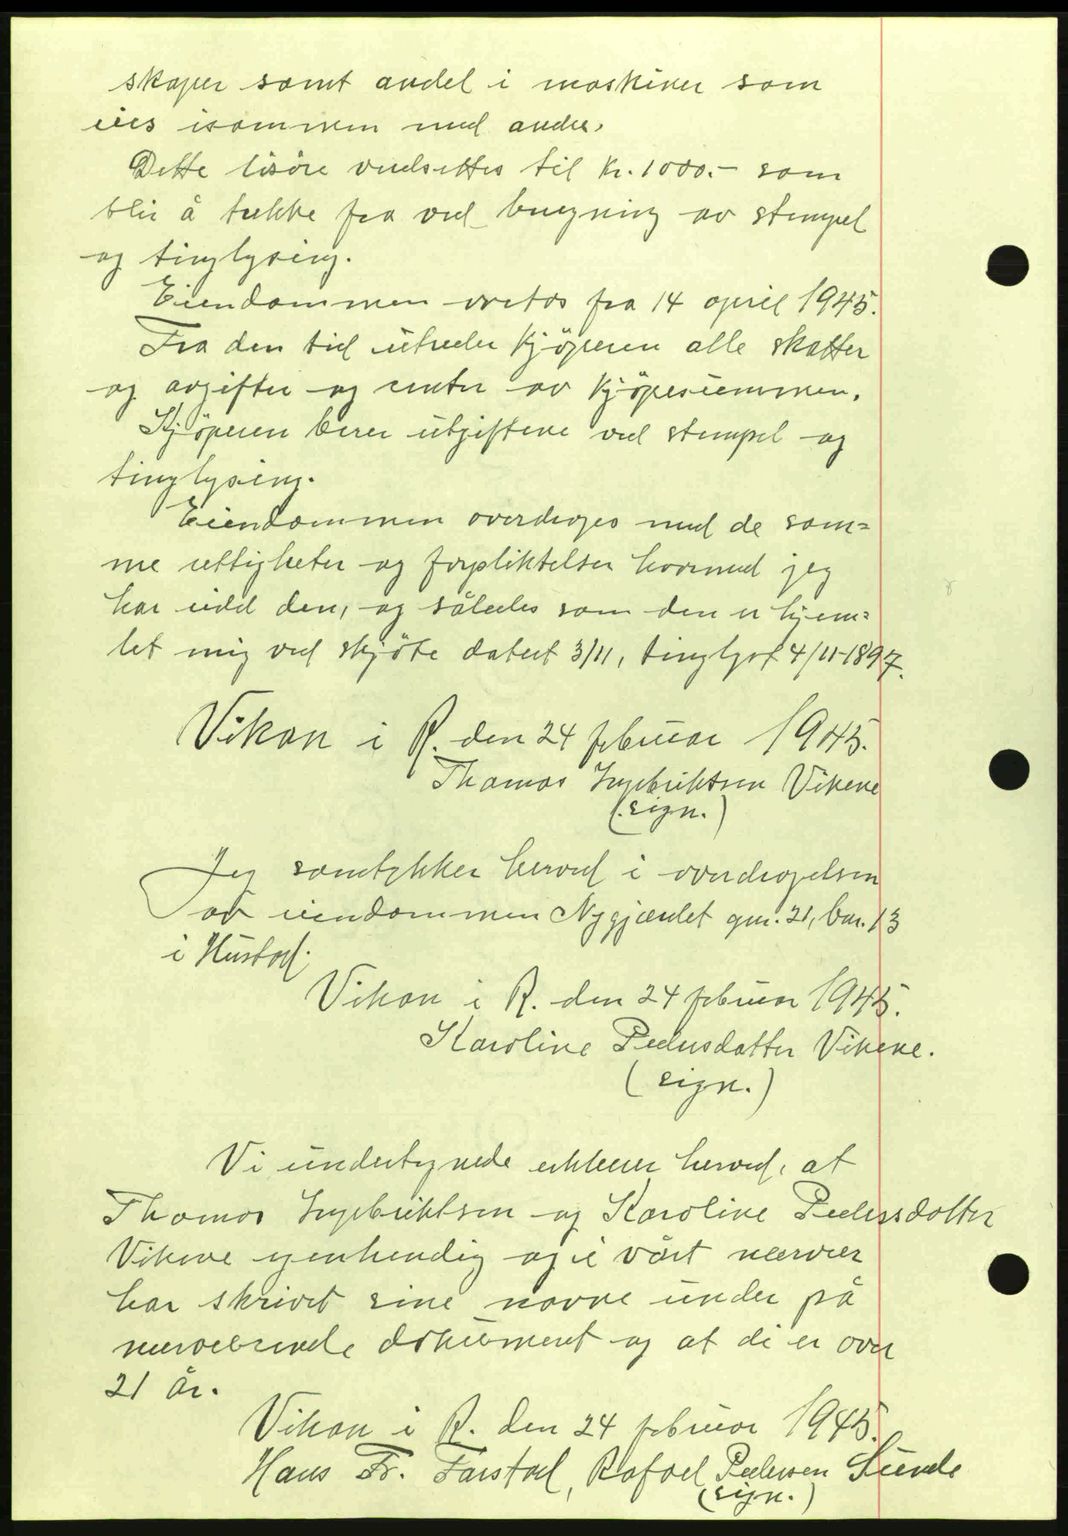 skaper samt andel i maskiner som
eies isammen med andre.
Dette lösöre verdsettes til kr. 1000.- som
blir å trekke fra ved beregning av stempel
og tinglysing.
Eiendommen overtas fra 14 april 1945.
Fra den tid utreder kjöperen alle skatter
og avgifter og renter av kjöpesummen.
Kjöperen berer utgiftene ved stempel og
tinglysing.
Eiendommen overdrages med de sam=
me rettigheter og forpliktelser hvormed jeg
har eidd den, og således som den er hjem=
let mig ved skjöte datert 3/11, tinglyst 4/11-1897.
Vikan i R. den 24 februar 1945.
Thomas Ingebriktsen Vikene
(sign.)
Jeg samtykker herved i overdragelsen
av eiendommen Nygjerdet gnr. 21, bnr. 13
i Hustad.
Vikan i R. den 24 februar 1945.
Karoline Pedersdatter Vikene.
(sign.)
Vi undertegnede erklerer herved, at
Thomas Ingebriktsen og Karoline Pedersdatter
Vikene egenhendig og i vårt nerver
har skrevet sine navne under på
nerverende dokument og at de er over
21 år.
Vikan i R. den 24 februar 1945.
Hans Fr. Farstad, Rafael Pedersen Sunde
(sign.)